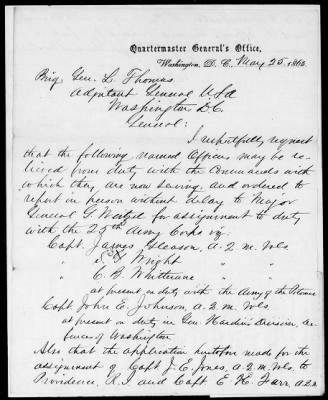 Quartermaster General's Office,
Washington, D. C. May 25, 186
Brig. Gen. L. Thomas
Adjutant General USA
Washington D.C.
General:
I respectfully request
that the following named Officers may be re-
lieved from duty with the Commands with
which they are now serving and ordered to
report in person without delay to Major
General G Weitzel for assignment to duty
with the 25th Army Corps viz;
Capt. James Gleason, A.Q.M. Vols
" Wright " "
" C. B. " "
at present on duty with the Army of the Potomac
Capt. John E. Johnson, A.Q.M. Vols.
at present on duty in Gen. Hardin's Division, De-
fences of Washington
Also that the application heretofore made for the
assignment of Capt J. E. Jones, A.Q.M. Vols. to
Providence, R.I. and Capt E. K. Farr, A.Q.M